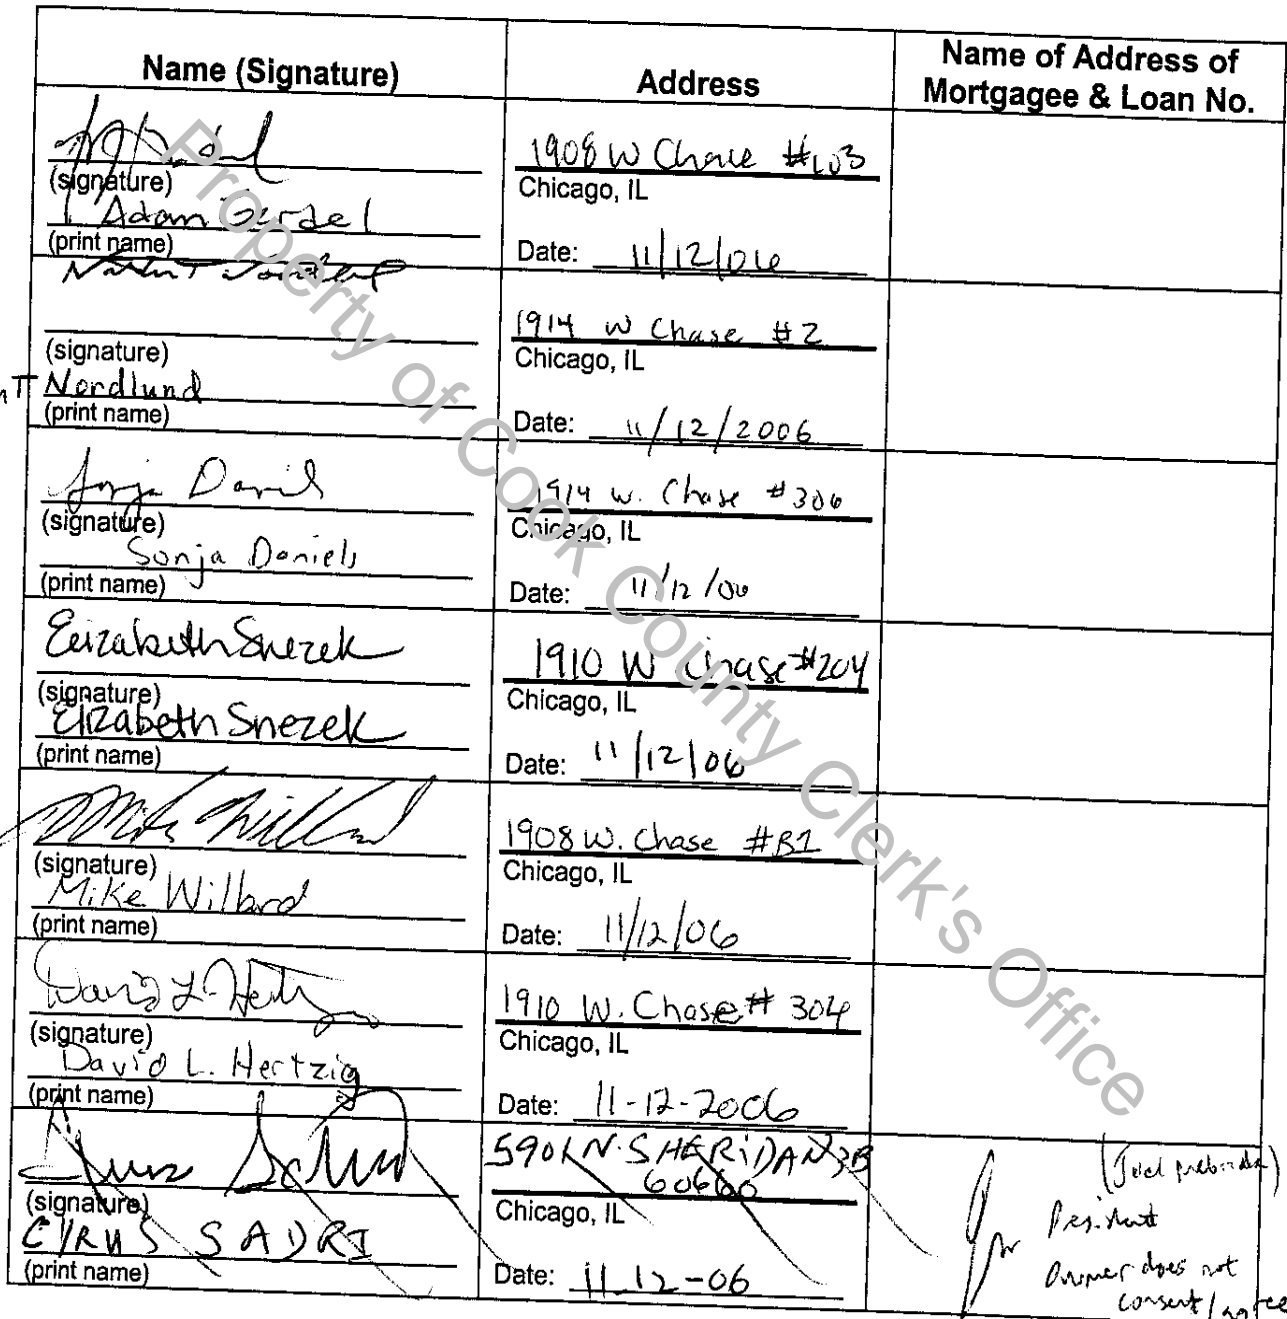 Name (Signature)
Address
Name of Address of
Mortgagee & Loan No.
(signature)
Adam
(print name)
1908 W Chase #103
Chicago, IL
Date: 11/12/06
(signature)
Nordlund
(print name)
1914 W Chase #2
Chicago, IL
Date: 11/12/2006
Sonja Daniels
(signature)
Sonja Daniels
(print name)
1914 W. Chase #306
Chicago, IL
Date: 11/12/06
Elizabeth Snezek
(signature)
Elizabeth Snezek
(print name)
1910 W Chase #204
Chicago, IL
Date: 11/12/06
Mike Willard
(signature)
Mike Willard
(print name)
1908 W. Chase #B1
Chicago, IL
Date: 11/12/06
David L. Hertzig
(signature)
David L. Hertzig
(print name)
1910 W. Chase # 304
Chicago, IL
Date: 11-12-2006
Cyrus Sadri
(signature)
CYRUS SADRI
(print name)
5901 N. SHERIDAN 3B
60660
Chicago, IL
Date: 11-12-06
President
Owner does not
consent/agree
Property of Cook County Clerk's Office